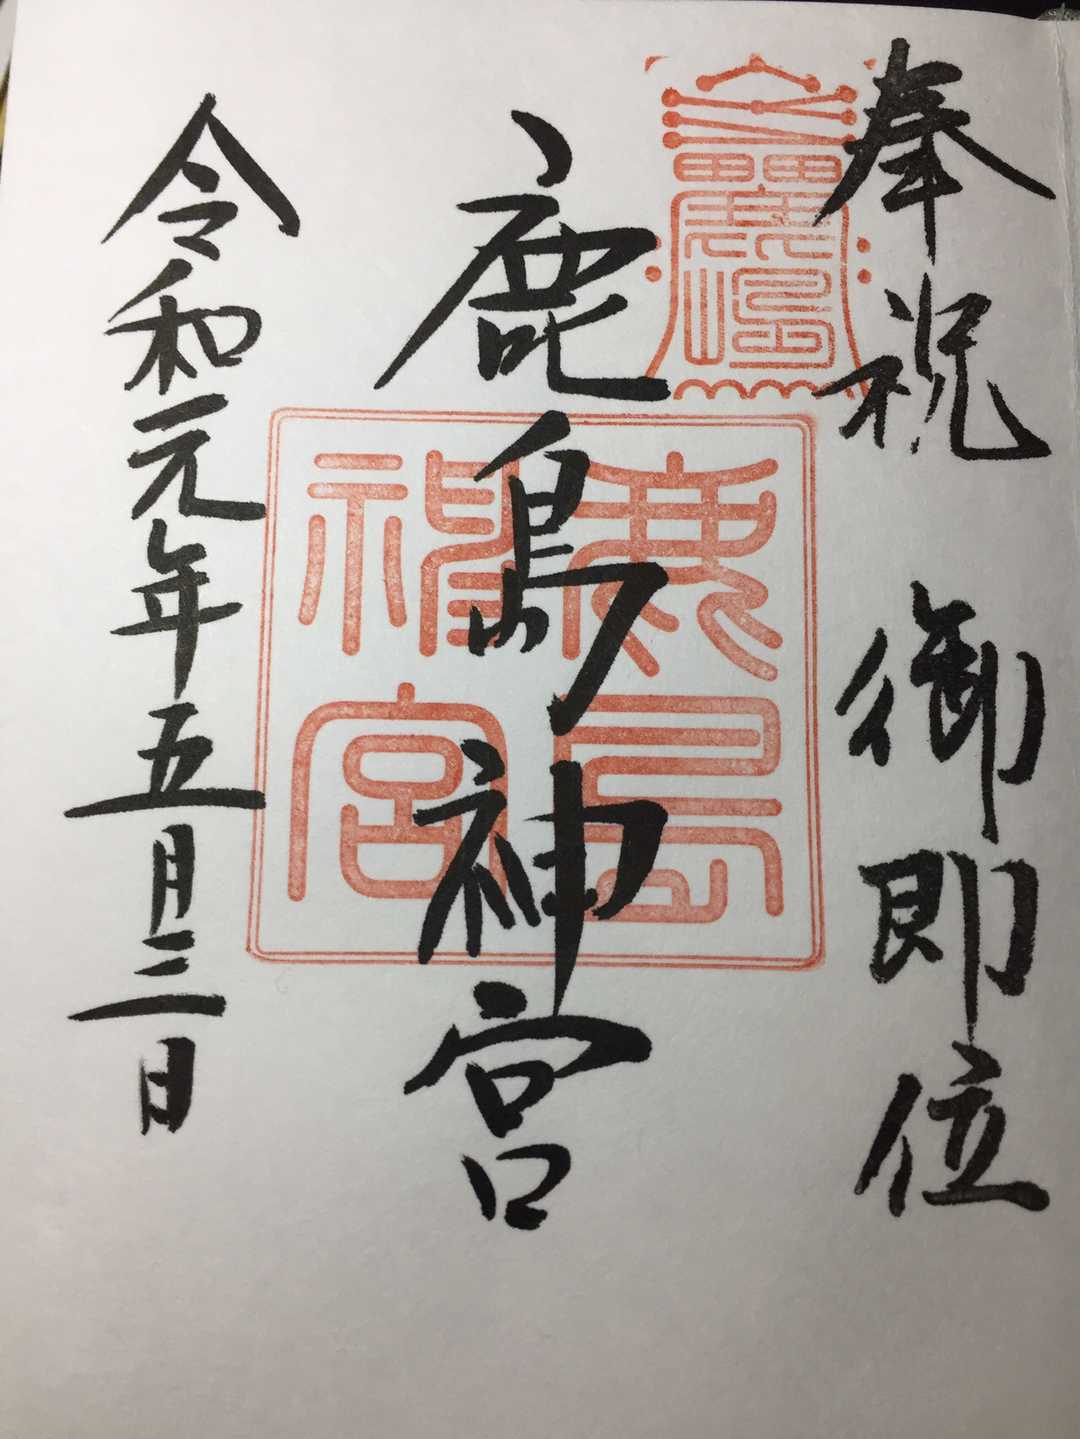 奉祝 御即位
鹿島神宮
鹿島神宮
令和元年五月三日